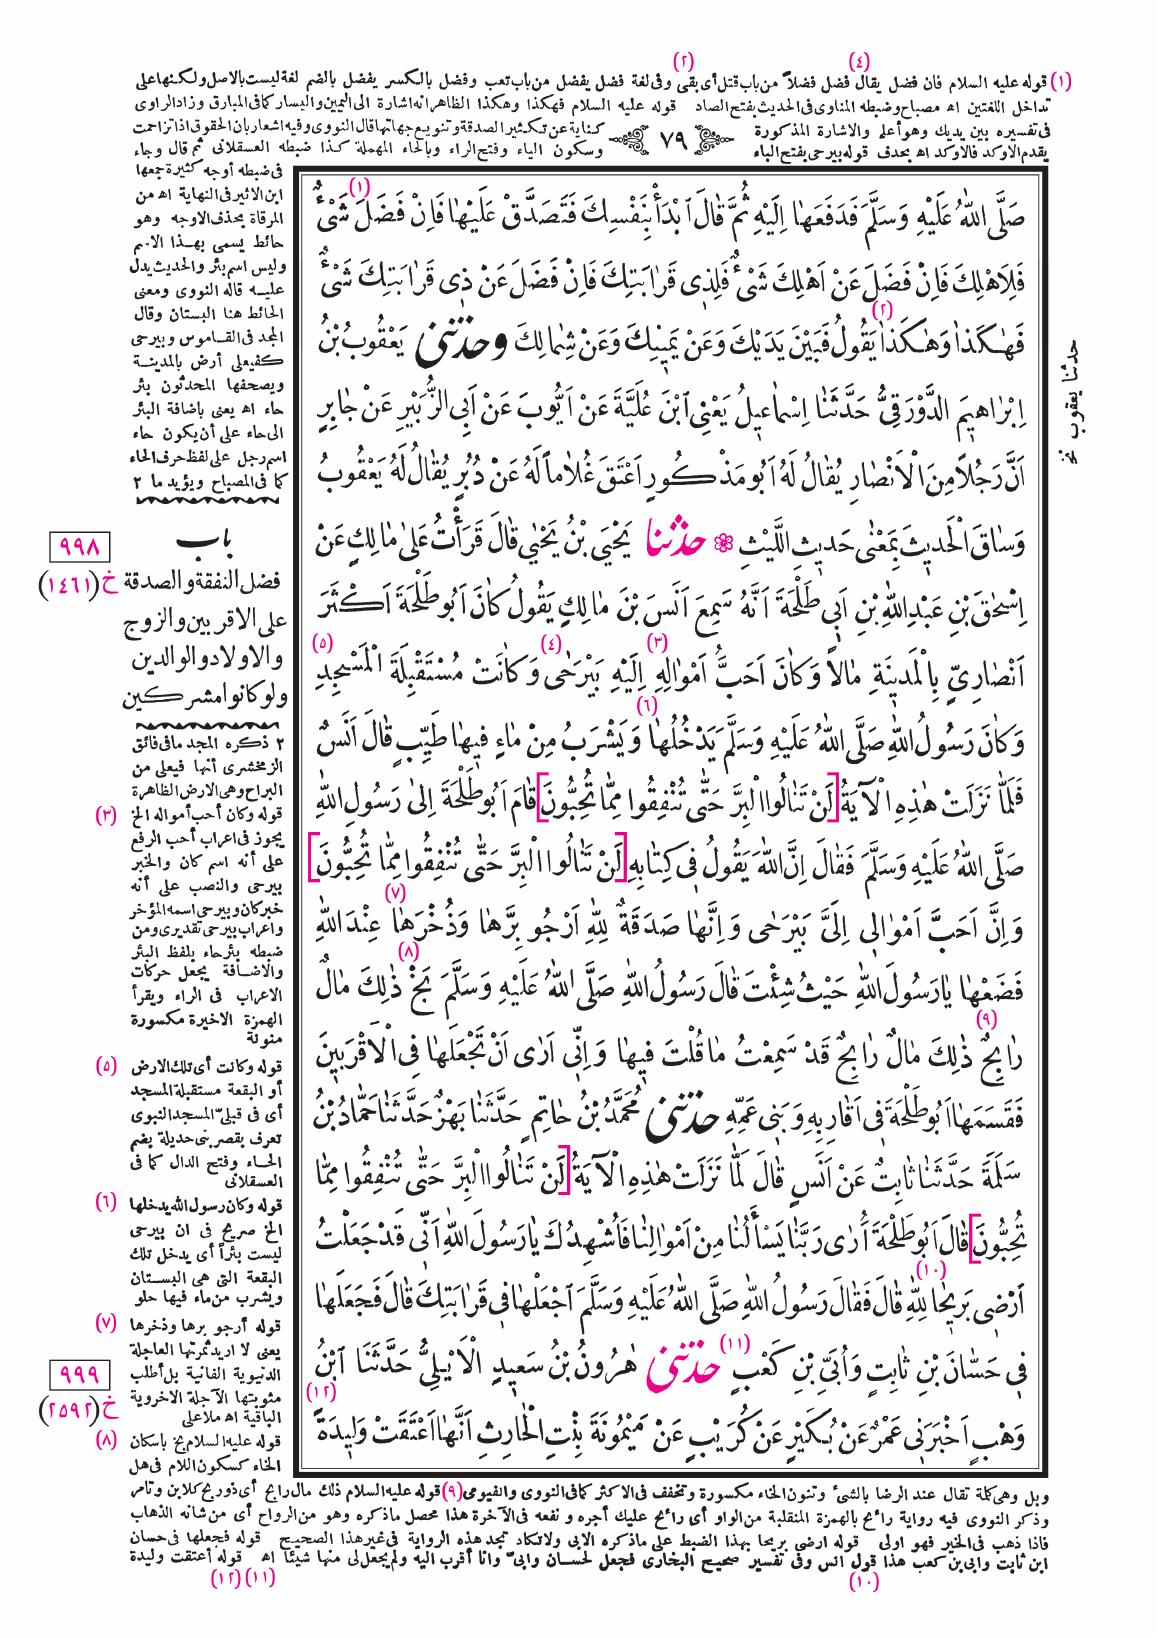 (٤) (٢)
(١) قوله عليه السلام فان فضل يقال فضل فضلاً من باب قتل أى بقى وفى لغة فضل يفضل من باب تعب وفضل بالكسر يفضل بالضم لغة ليست بالاصل ولكنها على
تداخل اللغتين اه مصباح وضبطه المناوى فى الحديث بفتح الصاد قوله عليه السلام فهكذا وهكذا الظاهر انه اشارة الى اليمين واليسار كما فى المبارق وزاد الراوى
فى تفسيره بين يديك وهو أعلم والاشارة المذكورة
يقدم الاوكد فالاوكد اه بحذف قوله بيرحى بفتح الباء
٧٩
كناية عن تكثير الصدقة وتنويع جهاتها قال النووى وفيه اشعار بان الحقوق اذا تزاحمت
وسكون الياء وفتح الراء وبالحاء المهملة كذا ضبطه العسقلانى ثم قال وجاء
صَلَّى اللهُ عَلَيْهِ وَسَلَّمَ فَدَفَعَهَا إِلَيْهِ ثُمَّ قَالَ ٱبْدَأْ بِنَفْسِكَ فَتَصَدَّقْ عَلَيْهَا فَإِنْ فَضَلَ (١) شَىْءٌ
فَلِأَهْلِكَ فَإِنْ فَضَلَ عَنْ أَهْلِكَ شَىْءٌ فَلِذِى قَرَابَتِكَ فَإِنْ فَضَلَ عَنْ ذِى قَرَابَتِكَ شَىْءٌ
فَهٰكَذَا وَهٰكَذَا (٢) يَقُولُ فَبَيْنَ يَدَيْكَ وَعَنْ يَمِينِكَ وَعَنْ شِمَالِكَ وحَدَّثَنِى يَعْقُوبُ بْنُ
إِبْرَاهِيمَ الدَّوْرَقِىُّ حَدَّثَنَا إِسْمَاعِيلُ يَعْنِى ٱبْنَ عُلَيَّةَ عَنْ أَيُّوبَ عَنْ أَبِى الزُّبَيْرِ عَنْ جَابِرٍ
أَنَّ رَجُلاً مِنَ الْأَنْصَارِ يُقَالُ لَهُ أَبُو مَذْكُورٍ أَعْتَقَ غُلَاماً لَهُ عَنْ دُبُرٍ يُقَالُ لَهُ يَعْقُوبُ
وَسَاقَ الْحَدِيثَ بِمَعْنٰى حَدِيثِ اللَّيْثِ ❁ حَدَّثَنَا يَحْيَى بْنُ يَحْيٰى قَالَ قَرَأْتُ عَلٰى مَالِكٍ عَنْ
إِسْحٰقَ بْنِ عَبْدِ اللهِ بْنِ أَبِى طَلْحَةَ أَنَّهُ سَمِعَ أَنَسَ بْنَ مَالِكٍ يَقُولُ كَانَ أَبُو طَلْحَةَ أَكْثَرَ
أَنْصَارِىٍّ بِالْمَدِينَةِ مَالاً وَكَانَ أَحَبُّ أَمْوَالِهِ (٣) إِلَيْهِ بَيْرَحٰى (٤) وَكَانَتْ مُسْتَقْبِلَةَ الْمَسْجِدِ (٥)
وَكَانَ رَسُولُ اللهِ صَلَّى اللهُ عَلَيْهِ وَسَلَّمَ يَدْخُلُهَا (٦) وَيَشْرَبُ مِنْ مَاءٍ فِيهَا طَيِّبٍ قَالَ أَنَسٌ
فَلَمَّا نَزَلَتْ هٰذِهِ الْآيَةُ [لَنْ تَنَالُوا الْبِرَّ حَتّٰى تُنْفِقُوا مِمَّا تُحِبُّونَ] قَامَ أَبُو طَلْحَةَ إِلٰى رَسُولِ اللهِ
صَلَّى اللهُ عَلَيْهِ وَسَلَّمَ فَقَالَ إِنَّ اللهَ يَقُولُ فِى كِتَابِهِ [لَنْ تَنَالُوا الْبِرَّ حَتّٰى تُنْفِقُوا مِمَّا تُحِبُّونَ]
وَإِنَّ أَحَبَّ أَمْوَالِى إِلَىَّ بَيْرَحٰى وَإِنَّهَا صَدَقَةٌ لِلّٰهِ أَرْجُو بِرَّهَا وَذُخْرَهَا (٧) عِنْدَ اللهِ
فَضَعْهَا يَا رَسُولَ اللهِ حَيْثُ شِئْتَ قَالَ رَسُولُ اللهِ صَلَّى اللهُ عَلَيْهِ وَسَلَّمَ بَخْ (٨) ذٰلِكَ مَالٌ
رَابِحٌ (٩) ذٰلِكَ مَالٌ رَابِحٌ قَدْ سَمِعْتُ مَا قُلْتَ فِيهَا وَإِنِّى أَرٰى أَنْ تَجْعَلَهَا فِى الْأَقْرَبِينَ
فَقَسَمَهَا أَبُو طَلْحَةَ فِى أَقَارِبِهِ وَبَنِى عَمِّهِ حَدَّثَنِى مُحَمَّدُ بْنُ حَاتِمٍ حَدَّثَنَا بَهْزٌ حَدَّثَنَا حَمَّادُ بْنُ
سَلَمَةَ حَدَّثَنَا ثَابِتٌ عَنْ أَنَسٍ قَالَ لَمَّا نَزَلَتْ هٰذِهِ الْآيَةُ [لَنْ تَنَالُوا الْبِرَّ حَتّٰى تُنْفِقُوا مِمَّا
تُحِبُّونَ] قَالَ أَبُو طَلْحَةَ أُرٰى رَبَّنَا يَسْأَلُنَا مِنْ أَمْوَالِنَا فَأُشْهِدُكَ يَا رَسُولَ اللهِ أَنِّى قَدْ جَعَلْتُ
أَرْضِى بَرِيحَا (١٠) لِلّٰهِ قَالَ فَقَالَ رَسُولُ اللهِ صَلَّى اللهُ عَلَيْهِ وَسَلَّمَ ٱجْعَلْهَا فِى قَرَابَتِكَ قَالَ فَجَعَلَهَا
فِى حَسَّانَ بْنِ ثَابِتٍ وَأُبَىِّ بْنِ كَعْبٍ (١١) حَدَّثَنِى هٰرُونُ بْنُ سَعِيدٍ الْأَيْلِىُّ حَدَّثَنَا ٱبْنُ
وَهْبٍ أَخْبَرَنِى عَمْرٌو عَنْ بُكَيْرٍ عَنْ كُرَيْبٍ عَنْ مَيْمُونَةَ بِنْتِ الْحَارِثِ أَنَّهَا أَعْتَقَتْ وَلِيدَةً (١٢)
حدثنا يعقوب نخ
فى ضبطه أوجه كثيرة جمعها
ابن الاثير فى النهاية اه من
المرقاة بحذف الاوجه وهو
حائط يسمى بهذا الاسم
وليس اسم بئر والحديث يدل
عليه قاله النووى ومعنى
الحائط هنا البستان وقال
المجد فى القاموس وبيرحى
كفيعلى أرض بالمدينة
ويصحفها المحدثون بئر
حاء اه يعنى باضافة البئر
الى حاء على أن يكون حاء
اسم رجل على لفظ حرف الحاء
كما فى المصباح ويؤيد ما ٢
باب
٩٩٨
خ (١٤٦١)
فضل النفقة والصدقة
على الاقربين والزوج
والاولاد والوالدين
ولو كانوا مشركين
٢ ذكره المجد ما فى فائق
الزمخشرى أنها فيعلى من
البراح وهى الارض الظاهرة
(٣) قوله وكان أحب أمواله الخ
يجوز فى اعراب أحب الرفع
على أنه اسم كان والخبر
بيرحى والنصب على أنه
خبر كان وبيرحى اسمه المؤخر
واعراب بيرحى تقديرى ومن
ضبطه بئر حاء بلفظ البئر
والاضافة يجعل حركات
الاعراب فى الراء ويقرأ
الهمزة الاخيرة مكسورة
منونة
(٥) قوله وكانت أى تلك الارض
أو البقعة مستقبلة المسجد
أى فى قبلىّ المسجد النبوى
تعرف بقصر بنى حديلة بضم
الحاء وفتح الدال كما فى
العسقلانى
(٦) قوله وكان رسول الله يدخلها
الخ صريح فى ان بيرحى
ليست بئراً أى يدخل تلك
البقعة التى هى البستان
ويشرب من ماء فيها حلو
(٧) قوله أرجو برها وذخرها
يعنى لا اريد ثمرتها العاجلة
الدنيوية الفانية بل أطلب
مثوبتها الآجلة الاخروية
الباقية اه ملا على
٩٩٩
خ (٢٥٩٢)
(٨) قوله عليه السلام بخ باسكان
الخاء كسكون اللام فى هل
وبل وهى كلمة تقال عند الرضا بالشئ وتنون الخاء مكسورة وتخفف فى الاكثر كما فى النووى والفيومى (٩) قوله عليه السلام ذلك مال رابح أى ذو ربح كلابن وتامر
وذكر النووى فيه رواية رائح بالهمزة المنقلبة من الواو أى رائح عليك أجره و نفعه فى الآخرة هذا محصل ماذكره وهو من الرواح أى من شانه الذهاب
فاذا ذهب فى الخير فهو اولى قوله ارضى بريحا بهذا الضبط على ماذكره الابى ولا تكاد تجد هذه الرواية فى غير هذا الصحيح قوله فجعلها فى حسان
ابن ثابت وابى بن كعب هذا قول انس وفى تفسير صحيح البخارى فجعل لحسان وابىّ وانا أقرب اليه ولم يجعل لى منها شيئا اه قوله أعتقت وليدة
(١٠) (١١) (١٢)